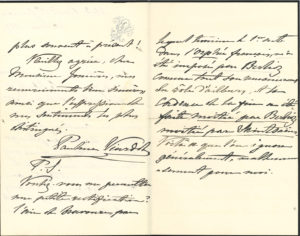 plus souvent présent!
Veuillez agréer, cher
Monsieur Joncières, mes
remerciements bien sincères
ainsi que l'expression de
mes sentiments les plus
distingués.
Pauline Viardot
P. S.
Voulez-vous me permettre
une petite rectification?
L'air de bravoure par
lequel termine le 1er acte
dans l'Orphée français, a
été imposé par Berlioz
comme tout son
du rôle d'ailleurs. Et la
Cadence de la fin a été
faite moitié par Berlioz
moitié par Saint-Saëns.
Voilà ce que l'on ignore
généralement, malheureu-
sement pour moi.